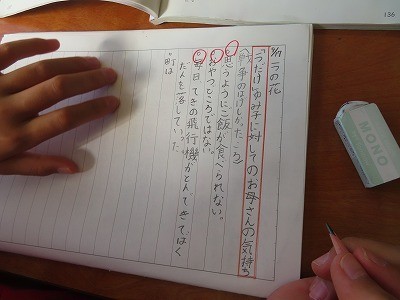 9/7 一つの花
「一つだけ」ゆみ子に対してのお母さんの気持ち
(戦争のはげしかったころ)
。思うようにご飯が食べられない。
。おやつどころではない。
。毎日てきの飛行機がとんできてばく
だんを落していった
。町は
MONO
136